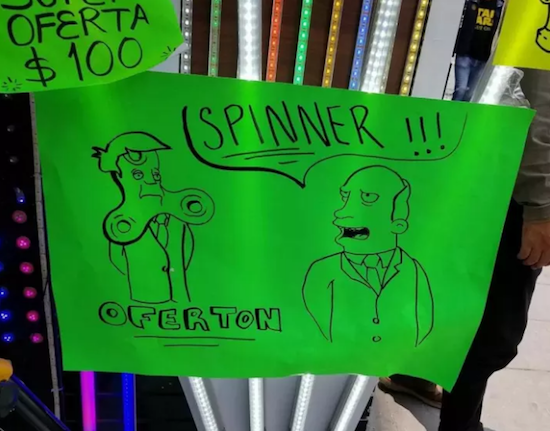 OFERTA
$100
SPINNER !!!
OFERTON